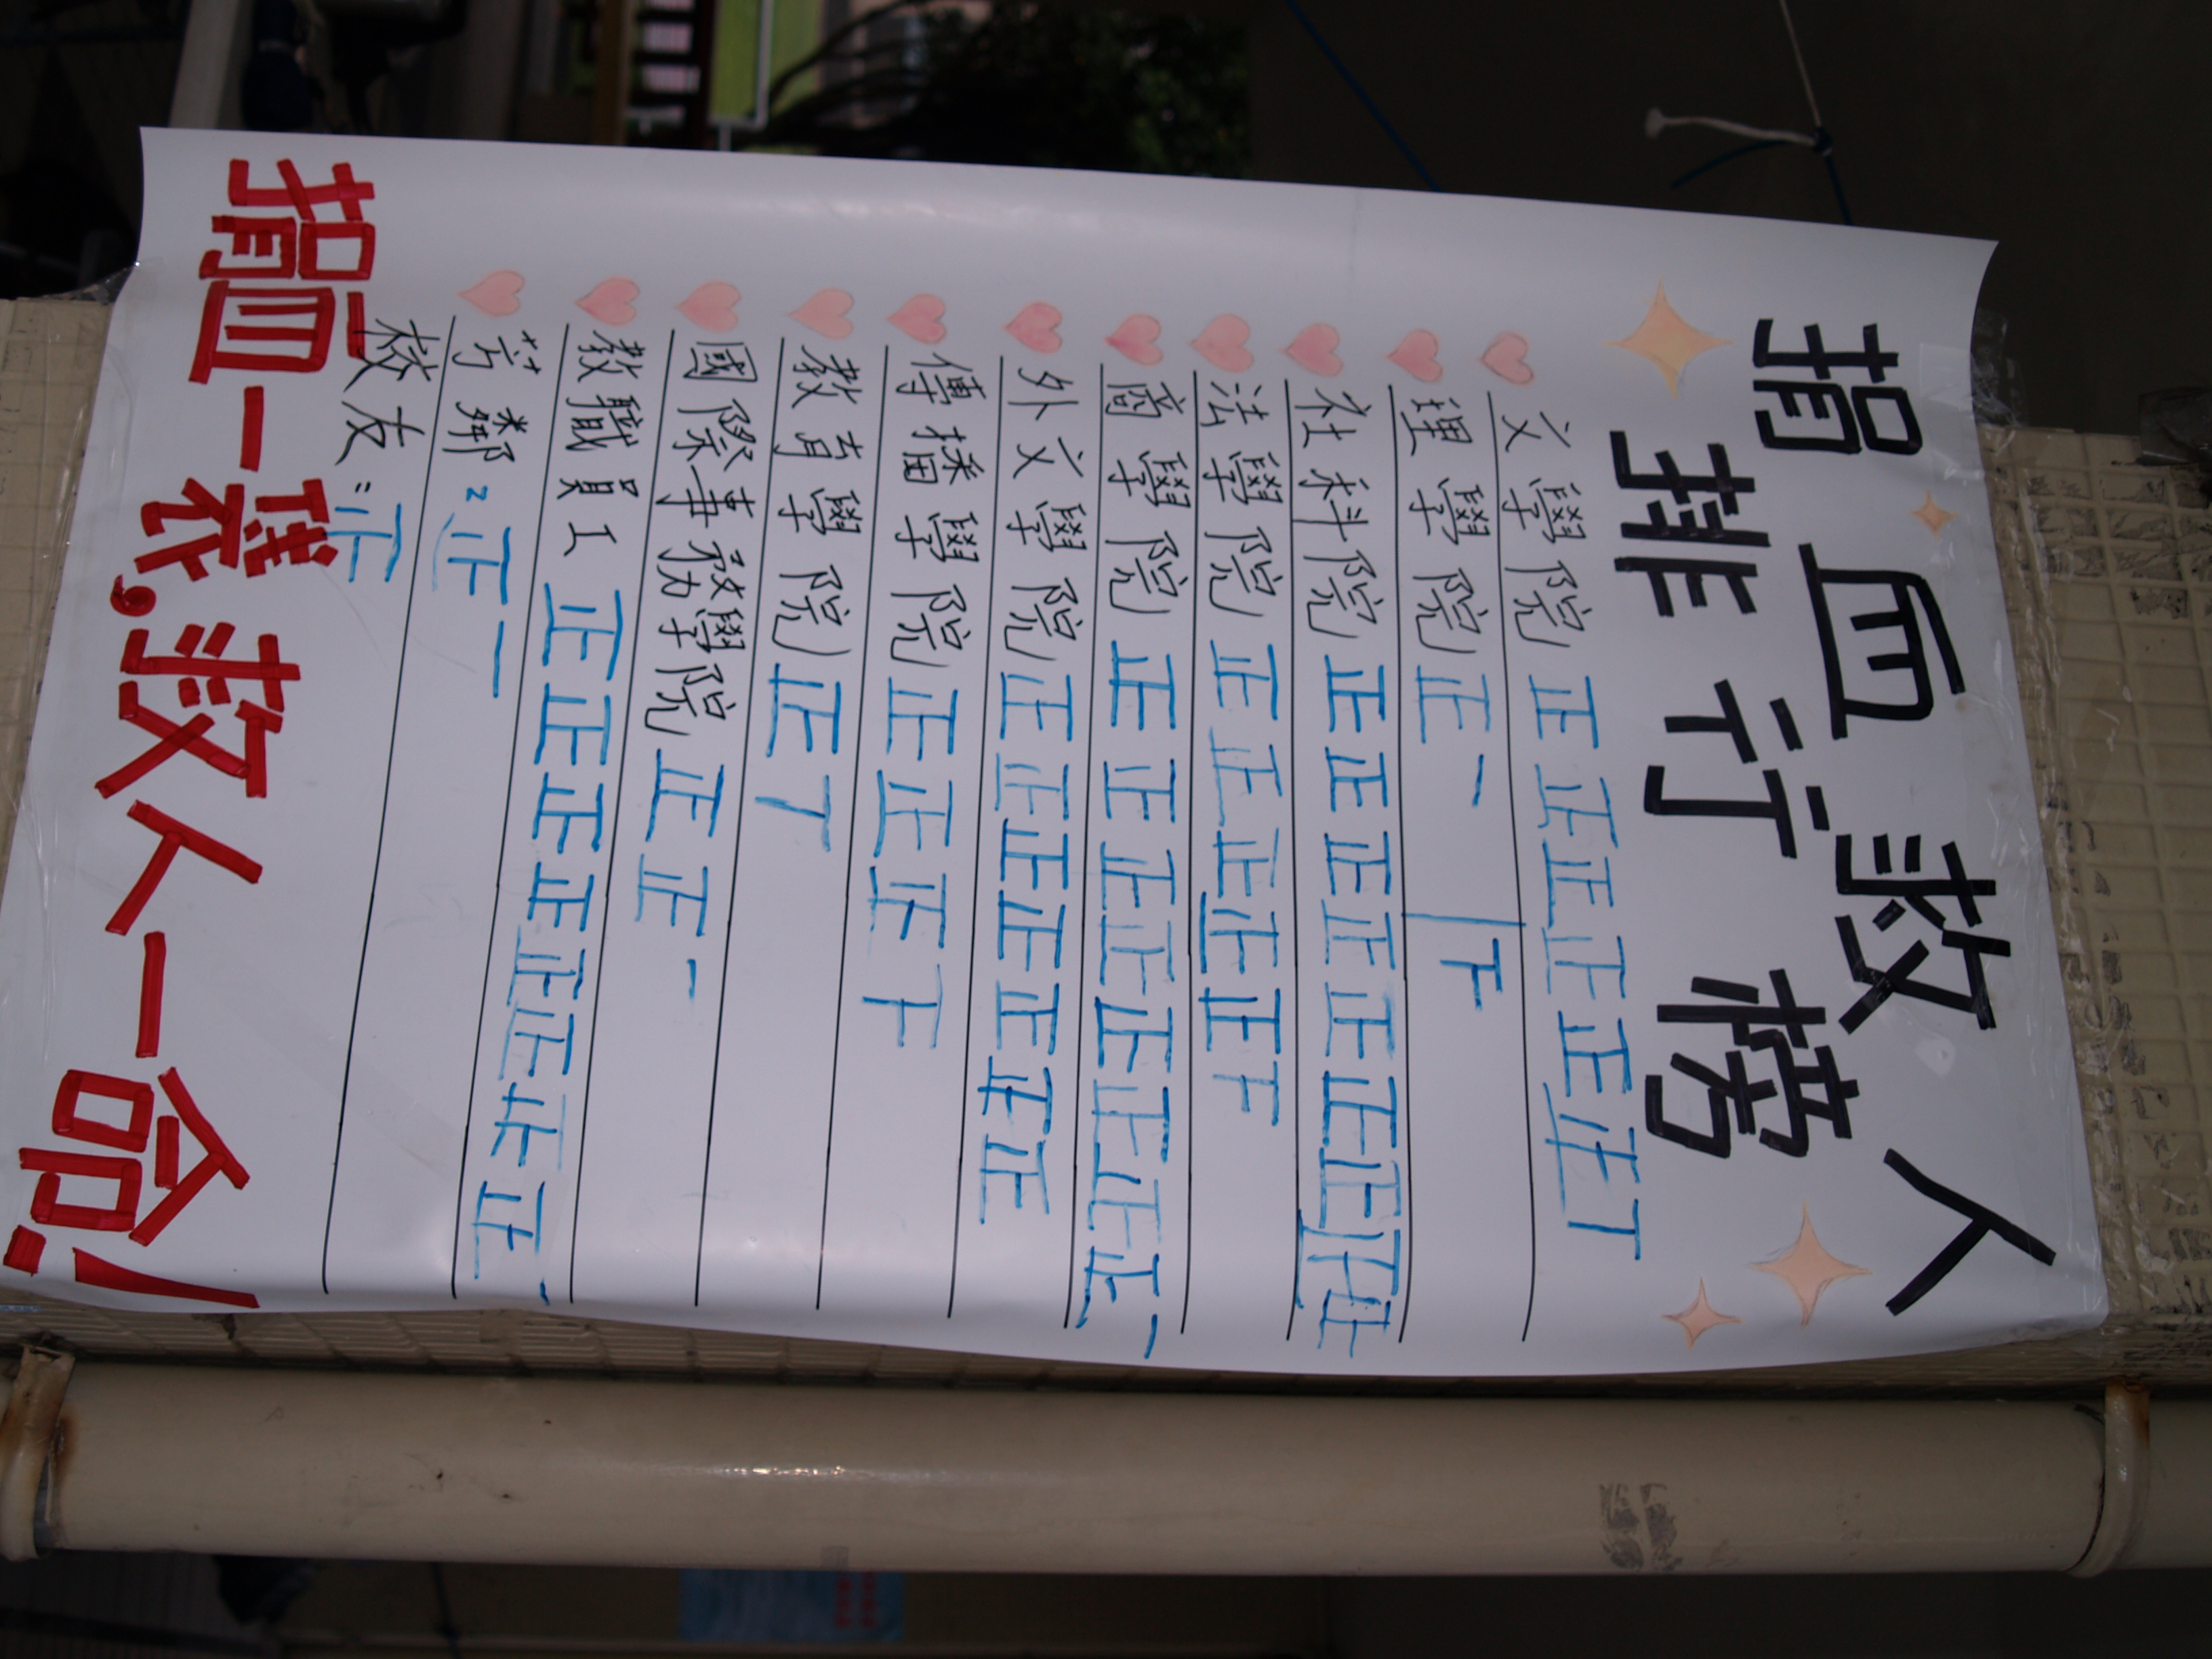 捐血救人
排行榜
文學院 正正正正正正丅
理學院 正一 下
社科院 正正正正正正正正正
法學院 正正正正正下
商學院 正正正正正正正正一
外文學院 正正正正正正正
傳播學院 正正正下
教育學院 正丅
國際事務學院 正正一
教職員工 正正正正正正正正一
芳鄰:正一
校友:正
捐血一袋,救人一命!